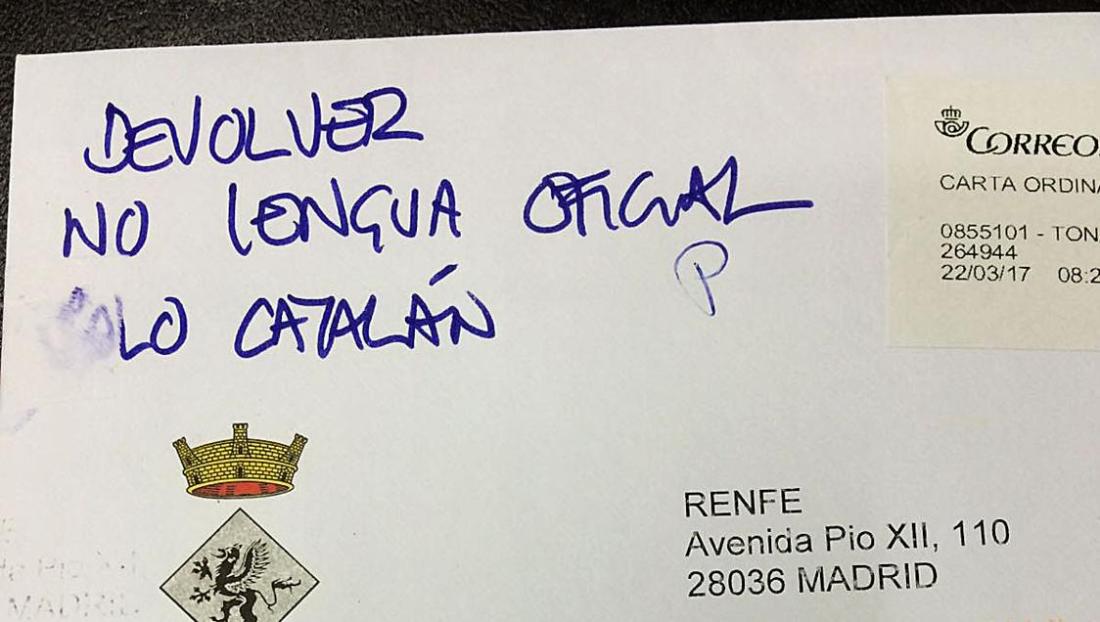 DEVOLVER
NO LENGUA OFICIAL
LO CATALÁN
P
CORREO
CARTA ORDINA
0855101 - TON
264944
22/03/17 08:2
RENFE
Avenida Pio XII, 110
28036 MADRID